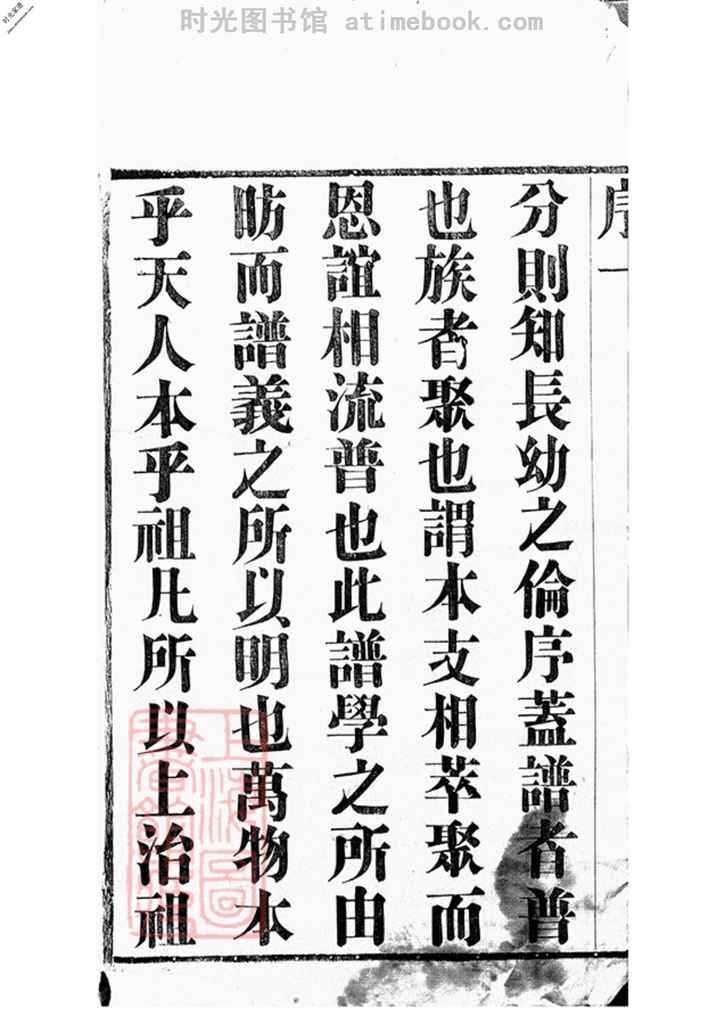 时光图书馆 atimebook.com
序一
分則知長幼之倫序蓋譜者普
也族者聚也謂本支相萃聚而
恩誼相流普也此譜學之所由
昉而譜義之所以明也萬物本
乎天人本乎祖凡所以上治祖